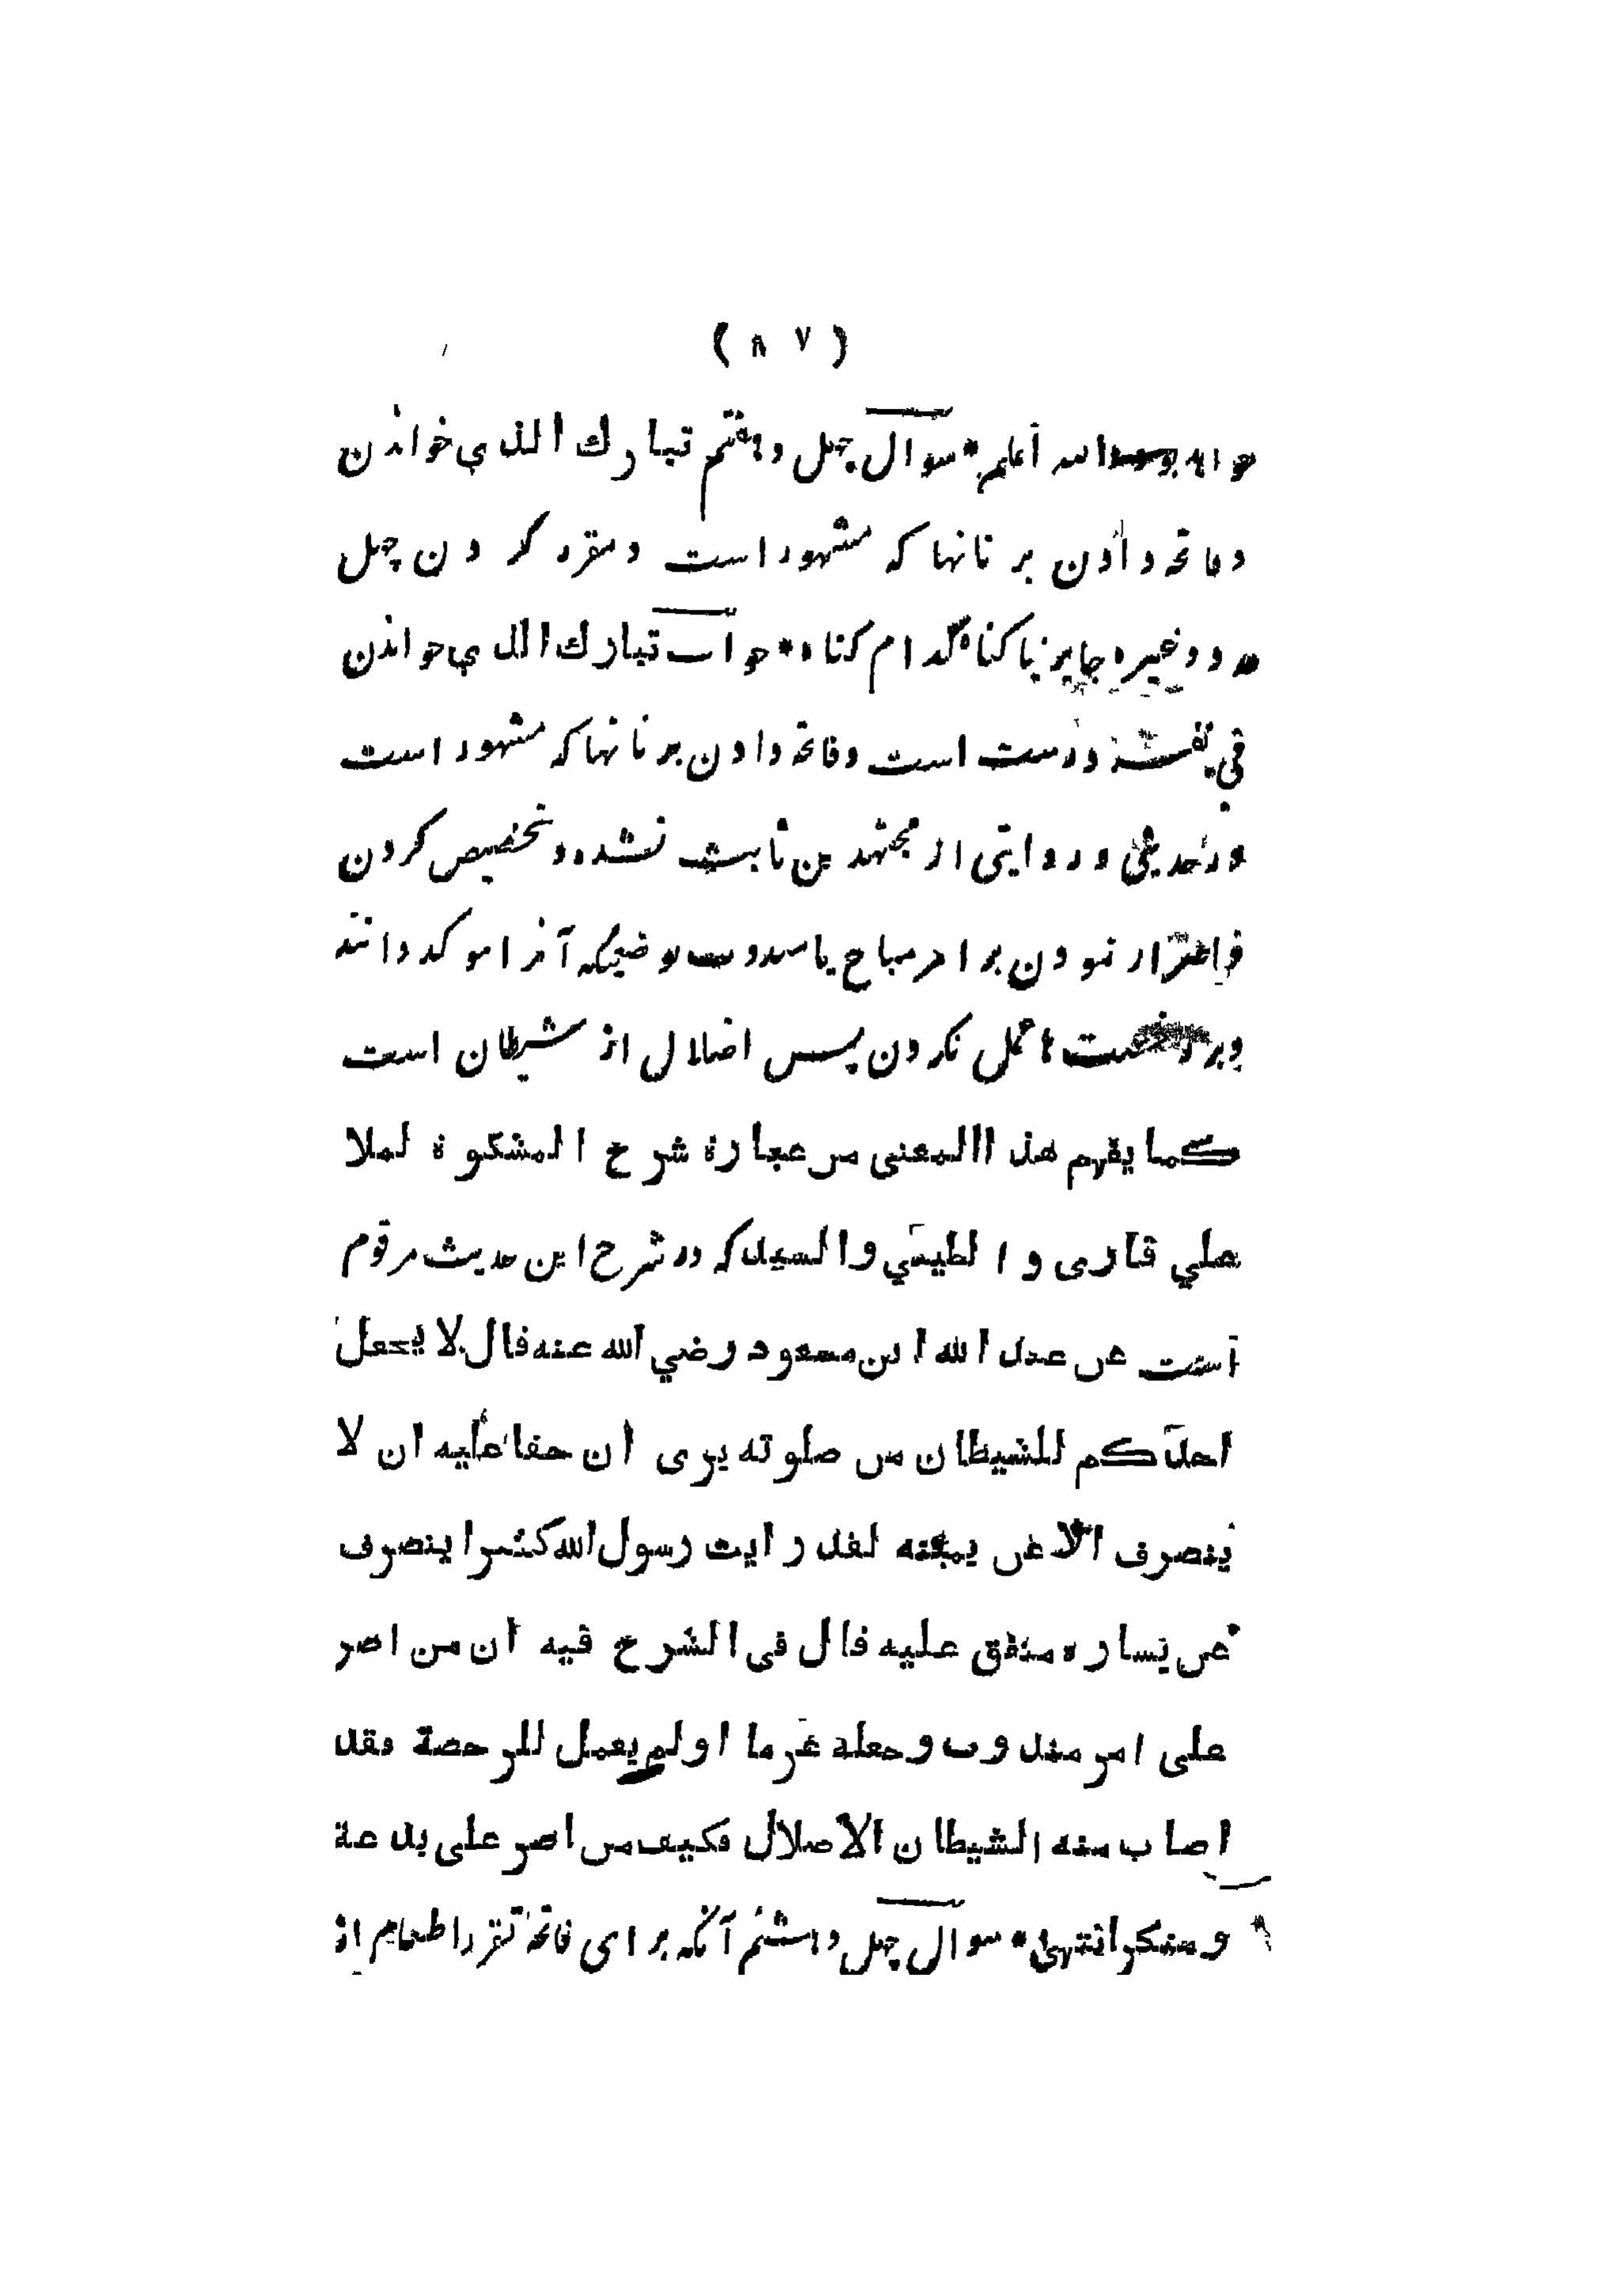 ( ٨٧ )
الله أعلم * سوال چهل وهفتم تبارك الذي خواندن
وفاتحه دادن بر نانها كه مشهور است ومقرر كردن چهل
عدد وغيره جايز يا كناه كدام كناه * جواب تبارك الذي خواندن
في نفسه درست است وفاتحه دادن بر نانها كه مشهور است
در حديثى و روايتى از مجتهدين ثابت نشده وتخصيص كردن
واصرار نمودن بر امر مباح يا مندوب بوضعيكه آنرا موكد دانند
وبر رخصت عمل نكردن پس اضلال از شيطان است
كما يفهم هذا المعنى من عبارة شرح المشكوة لملا
علي قارى و الطيبي والسيد كه در شرح اين حديث مرقوم
است عن عبد الله ابن مسعود رضي الله عنه قال لا يجعل
احدكم للشيطان من صلوته يرى ان حقا عليه ان لا
ينصرف الا عن يمينه لقد رايت رسول الله كثيرا ينصرف
عن يساره متفق عليه قال فى الشرح فيه ان من اصر
على امر مندوب وجعله عزما او لم يعمل للرخصة فقد
اصاب منه الشيطان الاضلال فكيف من اصر على بدعة
ومنكر انتهى * سوال چهل وهشتم آنكه براى فاتحه تقرر اطعام از